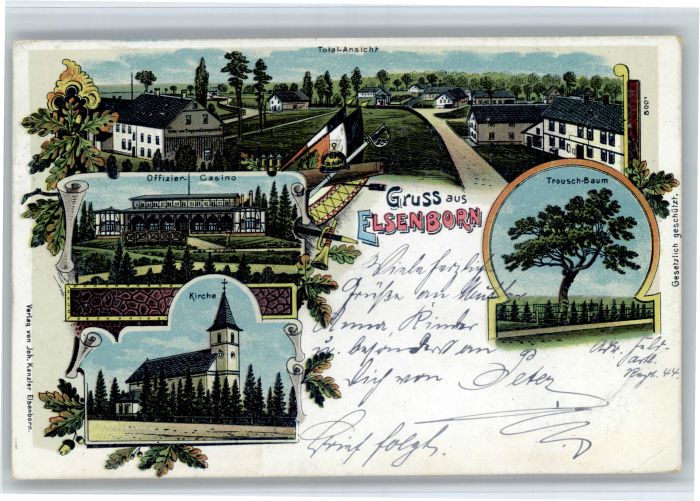 Total-Ansicht
500a
Offizier- Casino
Trousch-Baum
Gruss aus
ELSENBORN
Kirche
Gesetzlich geschützt.
Verlag von Joh. Kanzler Elsenborn.
Viele herzliche
Grüße an Mutter
Anna, Kinder
u. besonders an
Dich von Peter
Brief folgt.
Feld-
Art.
Regt. 44.